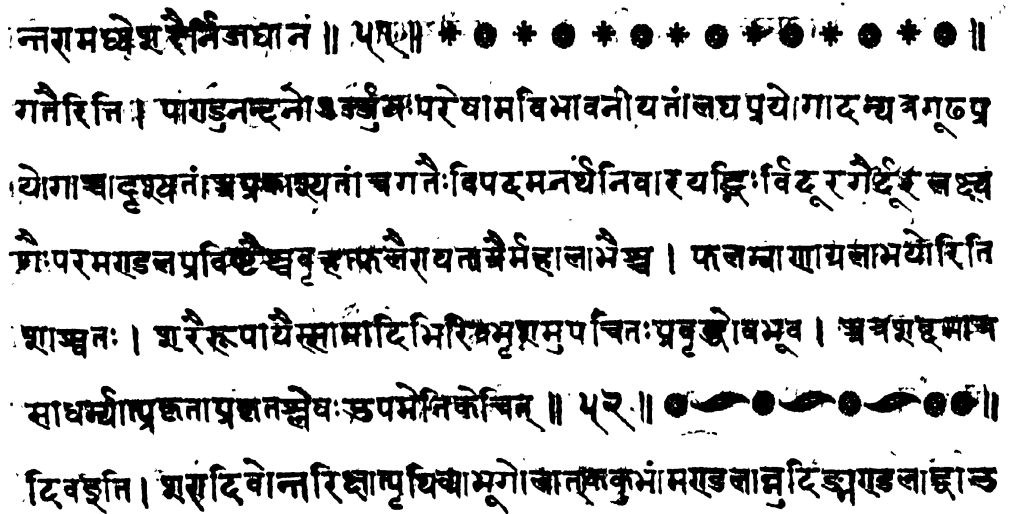 न्तरामध्येशरैर्निजघान ॥ ५१ ॥
गतैरिति । पाण्डुनन्दनोऽर्जुनःपरेषामविभावनीयतांलघुप्रयोगादन्यत्रगूढप्र
योगाच्चादृश्यतांअप्रकाश्यतांचगतैःविपदमनर्थंनिवारयद्भिःर्विदूरगैर्दूरलक्ष्यं
गैःपरमण्डलप्रविष्टैश्चबृहाफलैरायत्वग्रैर्महालाभैश्च । फलम्बाणाग्रलाभयोरिति
शाश्वतः । शरैरूपायैस्सामादिभिरिवभृशमुपचितःप्रवृद्धोबभूव । अत्रशब्दमात्र
साधर्म्यात्प्रकृताप्रकृतश्लेषः उपमेतिकेचित् ॥ ५२ ॥
दिवइति । शरादिवोन्तरिक्षात्पृथिव्याभूगोलात्ककुभांमण्डलान्नुदिङ्मण्डलाद्वाउत